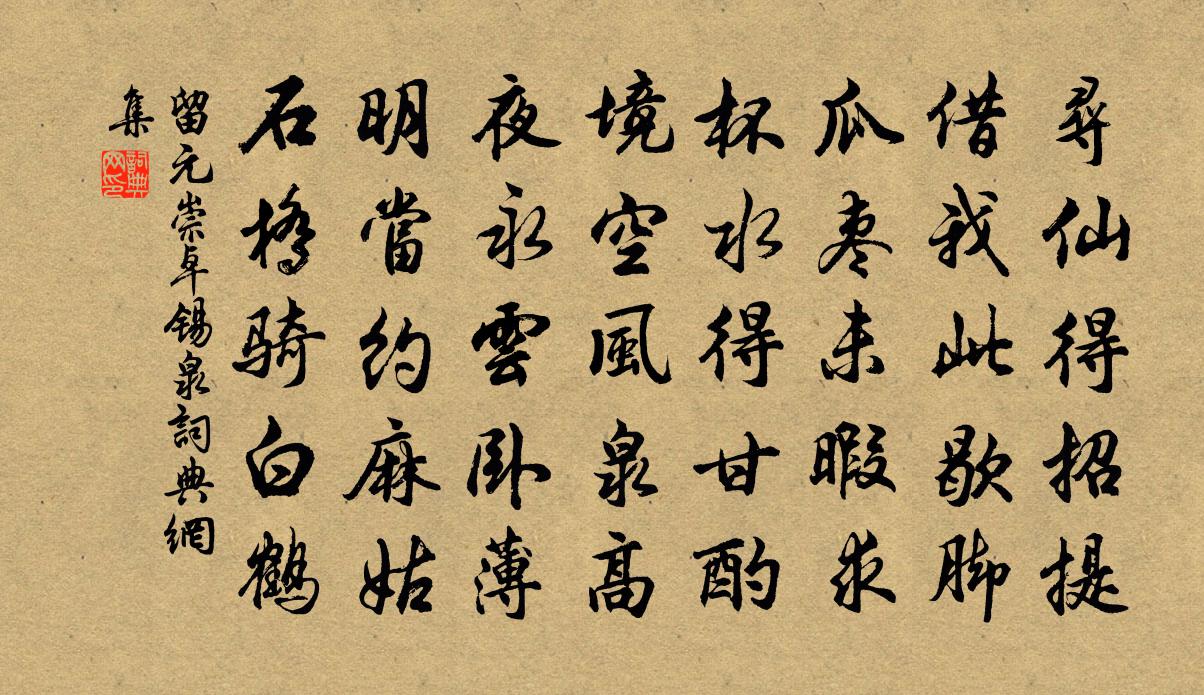 尋仙得招提
借我此歇脚
瓜棗未暇求
杯水得甘酌
境空風泉高
夜永雲卧薄
明當約麻姑
石橋騎白鶴
留元崇卓錫泉詞典網
集
詞典
网印